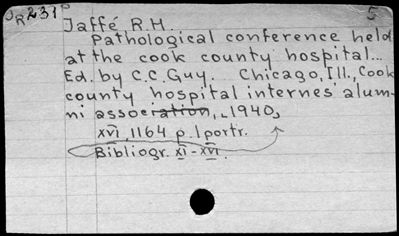 JR231P 5
Jaffé R.H.
Pathological conference held
at the cook county hospital...
Ed. by C.C. Guy. Chicago, Ill., Cook
county hospital internes alum-
ni association, 1940,
xvi, 1164 p. 1 portr.
Bibliogr. xi-xvi.